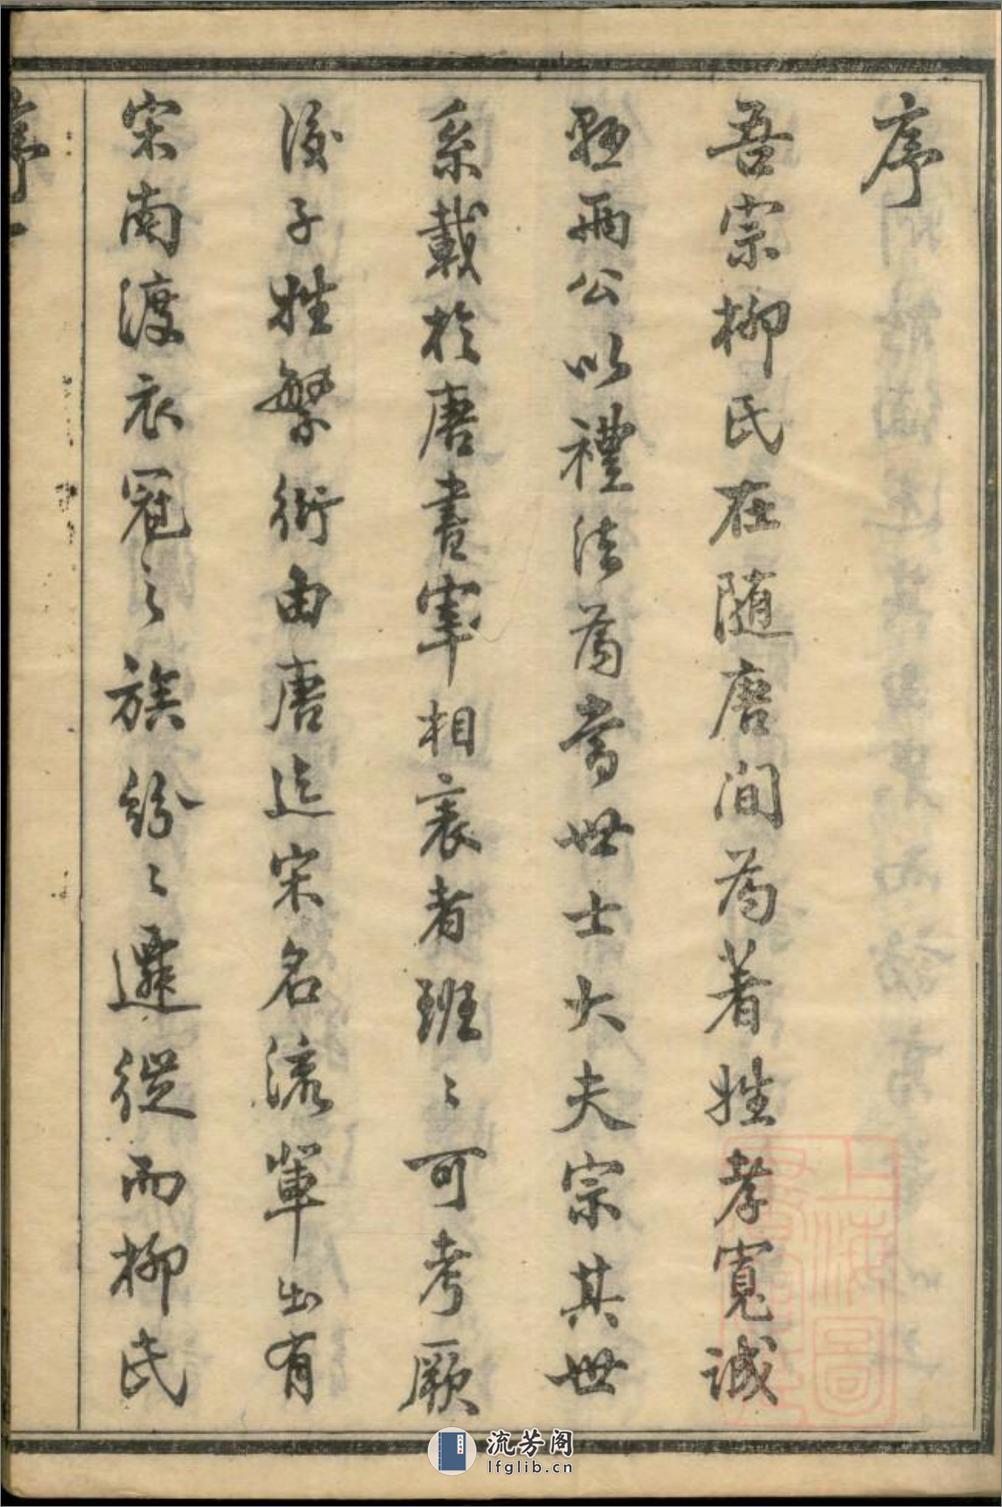 序
吾宗柳氏在随唐间為著姓孝寬誠
懸兩公以禮法為當世士大夫宗其世
系載於唐書宰相表者班〻可考厥
後子姓繁衍由唐迄宋名流軰出有
宋南渡衣冠之族紛〻遷徙而柳氏
序 一
上海圖書館藏
流芳阁
lfglib.cn